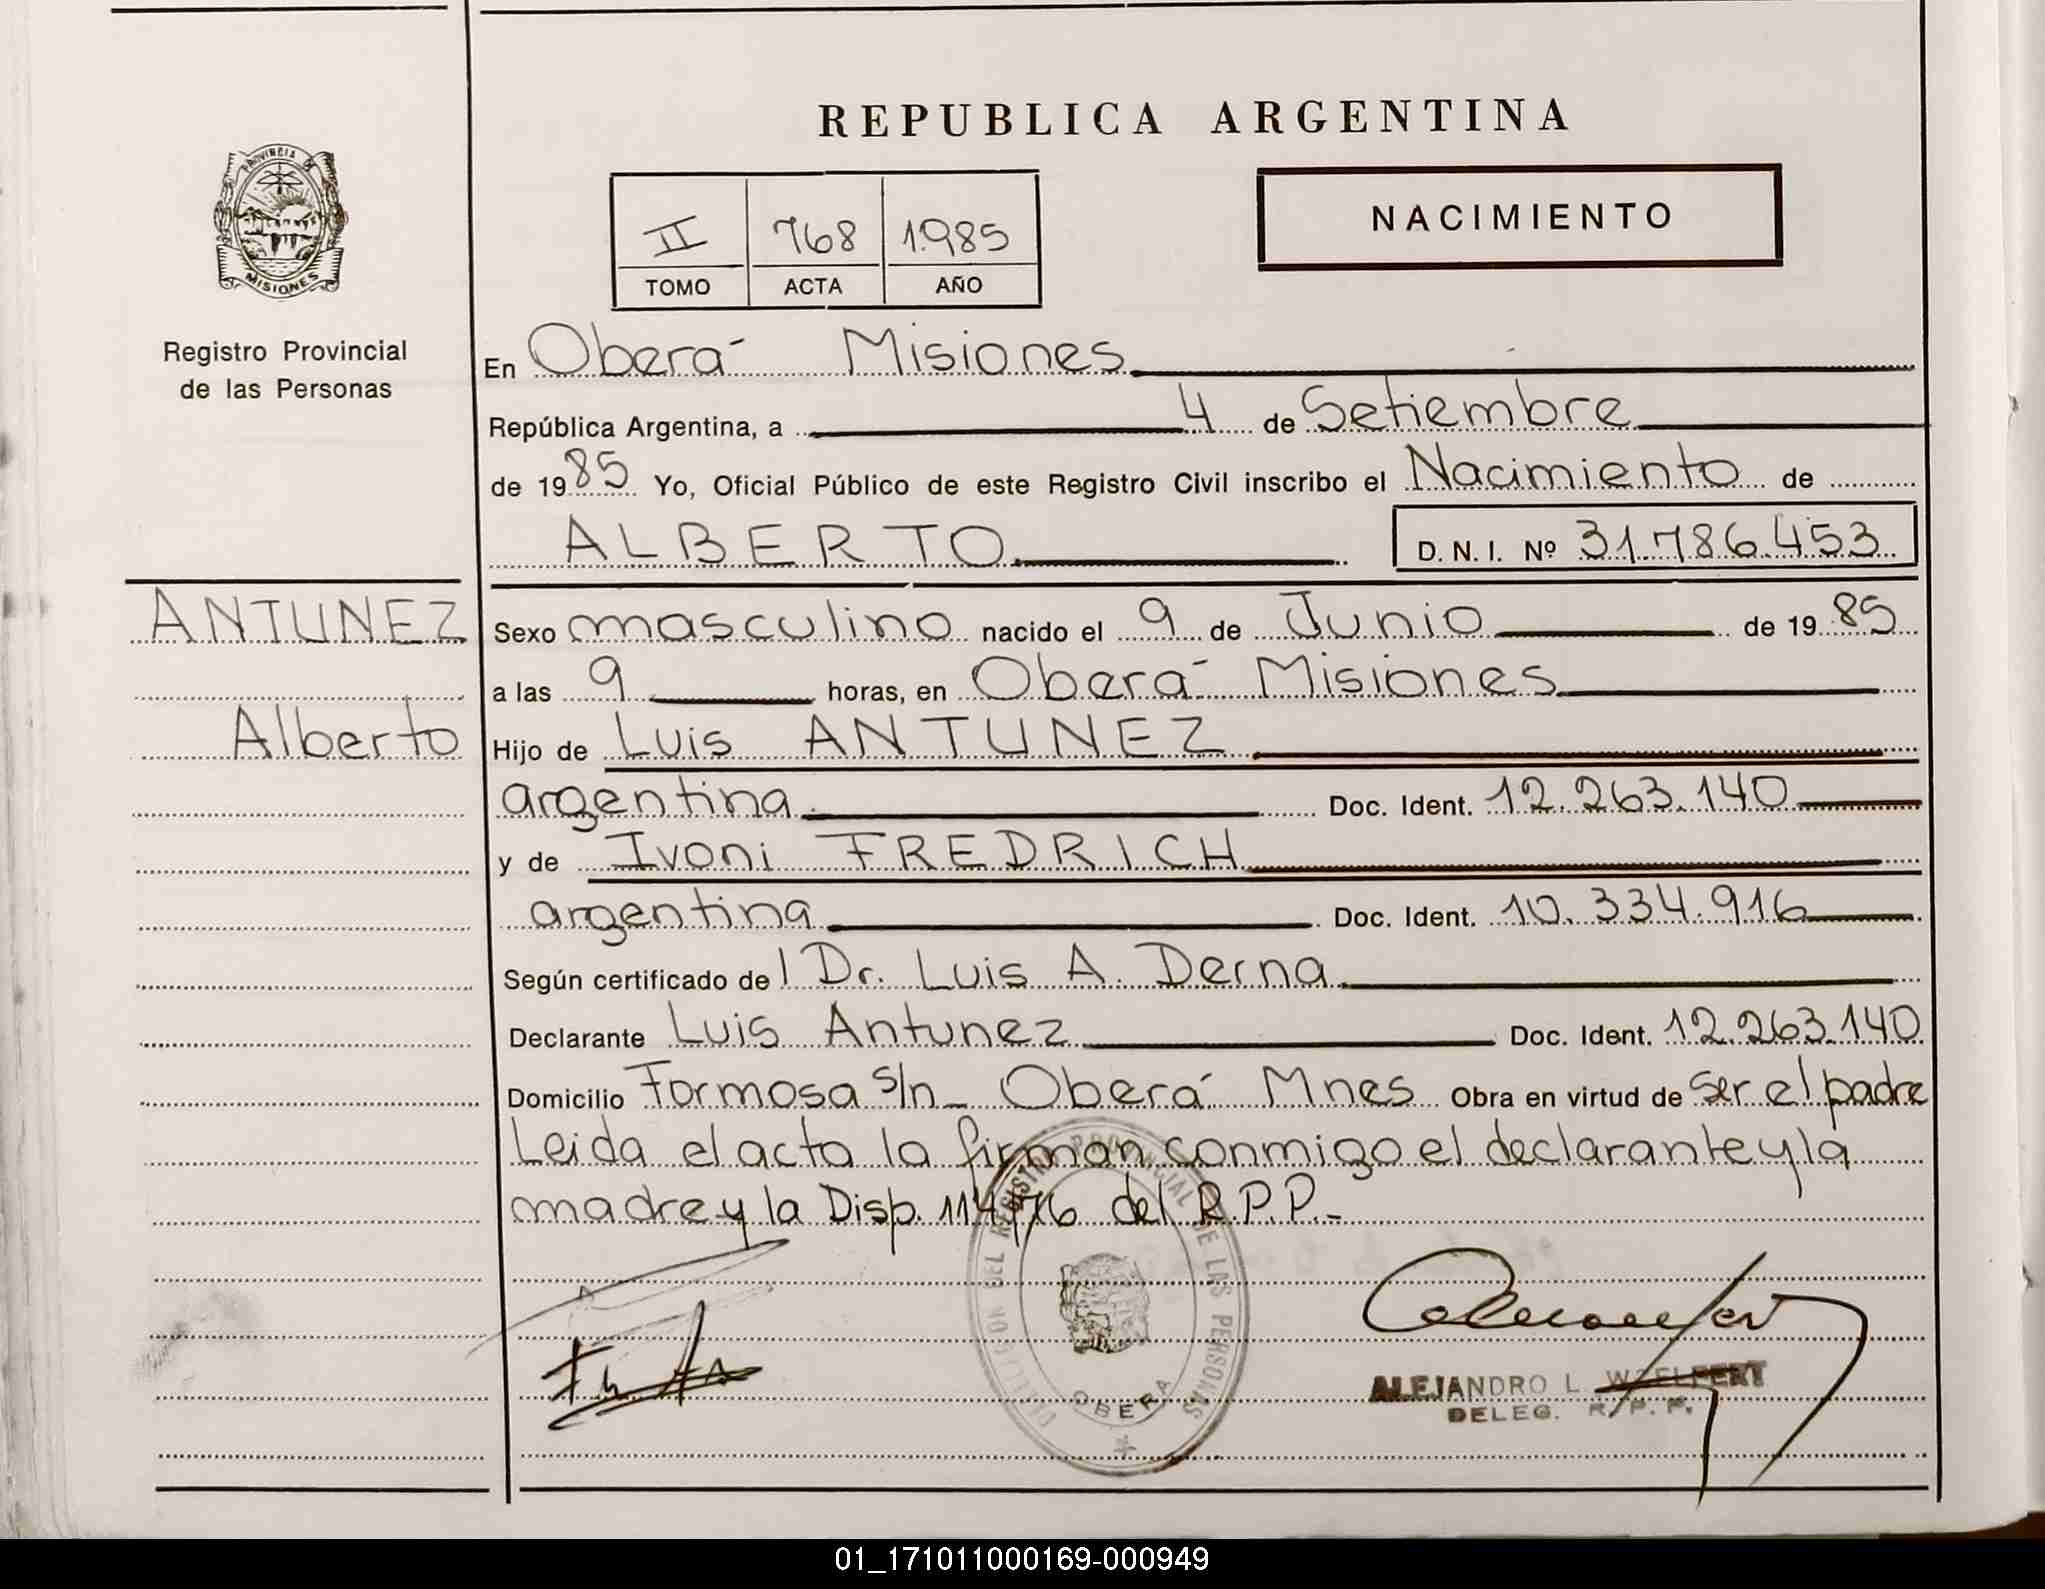 REPUBLICA ARGENTINA
PROVINCIA DE
MISIONES
Registro Provincial
de las Personas
II 768 1.985
TOMO ACTA AÑO
NACIMIENTO
En Oberá Misiones
República Argentina, a 4 de Setiembre
de 1985 Yo, Oficial Público de este Registro Civil inscribo el Nacimiento de
ALBERTO D. N. I. Nº 31.786.453
ANTUNEZ
Alberto
Sexo masculino nacido el 9 de Junio de 1985
a las 9 horas, en Oberá Misiones
Hijo de Luis ANTUNEZ
argentina Doc. Ident. 12.263.140
y de Ivoni FREDRICH
argentina Doc. Ident. 10.334.916
Según certificado de l Dr. Luis A. Derna
Declarante Luis Antunez Doc. Ident. 12.263.140
Domicilio Formosa s/n_ Oberá Mnes Obra en virtud de ser el padre
Leida el acta la firman conmigo el declarante y la
madre y la Disp. 114/76 del R.P.P._
DELEGACION DEL REGISTRO PROVINCIAL DE LAS PERSONAS
OBERA
ALEJANDRO L. WOELFERT
DELEG. R. P. P.
01_171011000169-000949